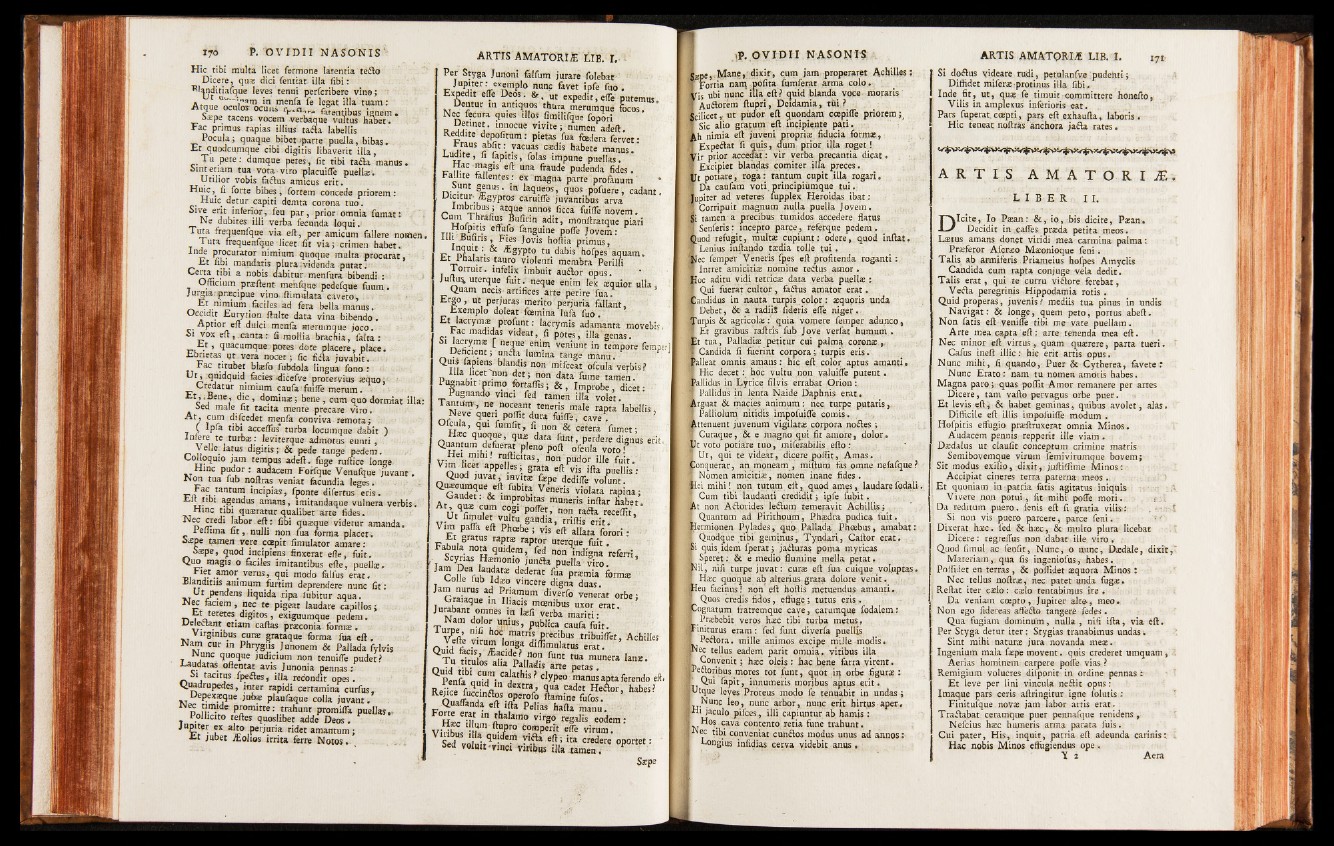 170 P. OVIDII NASONIS
Hic tibi multa licet sermone latentia tecto
Dicere, quæ dici sentiat illa sibi:
Blanditiasque leves tenui perscribere vino;
Ut dominam in mensa se legat illa tuam:
Atque oculos oculis spectare fatentibus ignem.
Sæpe tacens vocem verbaque vultus habet.
Fac primus rapias illius tacta labellis
Pocula; quaque bibet parte puella, bibas.
Et quodcumque cibi digitis libaverit illa,
Tu pete: dumque petes, sit tibi tacta manus.
Sint etiam tua vota viro placuisse puellæ.
Utilior vobis factus amicus erit.
Huic, si sorte bibes, sortem concede priorem:
Huic detur capiti demta corona tuo.
Sive erit inferior, seu par, prior omnia sumat:
Ne dubites illi verba secunda loqui.
Tuta frequensque via est, per amicum fallere nomen.
Tuta frequensque licet sit via; crimen habet.
Inde procurator nimium quoque multa procurat,
Et sibi mandatis plura videnda putat.
Certa tibi a nobis dabitur mensura bibendi:
Officium præstent mensque pedesque suum.
Jurgia præcipue vino stimulata caveto,
Et nimium faciles ad fera bella manus.
Occidit Eurytion stulte data vina bibendo.
Aptior est dulci mensa merumque joco.
Si vox est, canta: si mollia brachia, salta:
Et, quacumque potes dote placere, place.
Ebrietas ut vera nocet; sic ficta juvabit.
Fac titubet blæso subdola lingua sono:
Ut, quidquid facies dicesve protervius æquo;
Credatur nimium causa fuisse merum.
Et, Bene, dic, dominæ; bene, cum quo dormiat illa:
Sed male sit tacita mente precare viro.
At, cum discedet mensa conviva remota;
( Ipsa tibi accessus turba locumque dabit )
Insere te turbæ: leviterque admotus eunti,
Velle latus digitis; & pede tange pedem.
Colloquio jam tempus adest. fuge rustice longe
Hinc pudor: audacem Forsque Venusque juvant.
Non tua sub nostras veniat facundia leges.
Fac tantum incipias, sponte disertus eris.
Est tibi agendus amans, imitandaque vulnera verbis.
Hinc tibi quæratur qualibet arte fides.
Nec credi labor est: sibi quæque videtur amanda.
Pessima sit, nulli non sua forma placet.
Sæpe tamen vere cœpit simulator amare:
Sæpe, quod incipiens finxerat esse, fuit.
Quo magis o faciles imitantibus este, puellæ.
Fiet amor verus, qui modo falsus erat.
Blanditiis animum furtim deprendere nunc sit:
Ut pendens liquida ripa subitur aqua.
Nec faciem, nec te pigeat laudare capillos;
Et teretes digitos, exiguumque pedem.
Delectant etiam castas præconia formæ.
Virginibus curæ grataque forma sua est.
Nam cur in Phrygiis Junonem & Pallada sylvis
Nunc quoque judicium non tenuisse pudet?
Laudatas ostentat avis Junonia pennas:
Si tacitus spectes, illa recondit opes.
Quadrupedes, inter rapidi certamina cursus,
Depexæque jubæ plausaque colla juvant.
Nec timide promitte: trahunt promissa puellas.
Pollicito testes quoslibet adde Deos.
Jupiter ex alto perjuria ridet amantum;
Et jubet Æolios irrita ferre Notos.
ARTIS AMATORIÆ LIB. I.
Per Styga Junoni falsum jurare solebat
Jupiter: exemplo nunc favet ipse suo.
Expedit esse Deos. &, ut expedit, esse putemus.
Dentur in antiquos thura merumque focos.
Nec secura quies illos similisque sopori
Detinet. innocue vivite; numen adest.
Reddite depositum: pietas sua fœdera servet:
Fraus absit: vacuas cædis habete manus.
Ludite, si sapitis, solas impune puellas.
Hac magis est una fraude pudenda fides.
Fallite fallentes: ex magna parte profanum
Sunt genus. in laqueos, quos posuere, cadant.
Dicitur Ægyptos caruisse juvantibus arva
Imbribus; atque annos sicca fuisse novem.
Cum Thrasius Busirin adit, monstratque piari
Hospitis effuso sanguine posse Jovem:
Illi Busiris, Fies Jovis hostia primus,
Inquit: & Ægypto tu dabis hospes aquam.
Et Phalaris tauro violenti membra Perilli
Torruit. infelix imbuit auctor opus.
Justus, uterque fuit. neque enim lex æquior ulla,
Quam necis artifices arte perire sua.
Ergo, ut perjuras merito perjuria fallant,
Exemplo doleat fœmina læsa suo.
Et lacrymæ prosunt: lacrymis adamanta movebis.
Fac madidas videat, si potes, illa genas.
Si lacrymæ [ neque enim veniunt in tempore semper]
Deficient; uncta lumina tange manu.
Quis sapiens blandis non misceat oscula verbis?
Illa licet non det; non data sume tamen.
Pugnabit primo fortassis; &, Improbe, dicet:
Pugnando vinci sed tamen illa volet.
Tantum, ne noceant teneris male rapta labellis,
Neve queri possit dura fuisse, cave.
Oscula, qui sumsit, si non & cetera sumet;
Hæc quoque, quæ data sunt, perdere dignus erit.
Quantum defuerat pleno post oscula voto!
Hei mihi! rusticitas, non pudor ille fuit.
Vim licet appelles; grata est vis ista puellis:
Quod juvat, invitæ sæpe dedisse volunt.
Quæcumque est subita Veneris violata rapina;
Gaudet: & improbitas muneris instar habet.
At, quæ cum cogi posset, non tacta recessit,
Ut simulet vultu gaudia, tristis erit.
Vim passa est Phœbe; vis est allata sorori:
Et gratus raptæ raptor uterque fuit.
Fabula nota quidem, sed non indigna referri,
Scyrias Hæmonio juncta puella viro.
Jam Dea laudatæ dederat sua præmia formæ
Colle sub Idæo vincere digna duas.
Jam nurus ad Priamum diverso venerat orbe;
Graiaque in Iliacis mœnibus uxor erat.
Jurabant omnes in læsi verba mariti:
Nam dolor unius, publica causa fuit.
Turpe, nisi hoc matris precibus tribuisset, Achilles
Veste virum longa dissimulatus erat.
Quid facis, Æacide? non sunt tua munera lanæ.
Tu titulos alia Palladis arte petas.
Quid tibi cum calathis? clypeo manus apta ferendo est.
Pensa quid in dextra, qua cadet Hector, habes?
Rejice succinctos operoso stamine fusos.
Quassanda est ista Pelias hasta manu.
Forte erat in thalamo virgo regalis eodem:
Hæc illum stupro comperit esse virum.
Viribus illa quidem victa est; ita credere oportet:
Sed voluit vinci viribus illa tamen.
Sæpe
P. OVIDII NASONIS
Sæpe, Mane, dixit, cum jam properaret Achilles:
Fortia nam posita sumserat arma colo.
Vis ubi nunc illa est? quid blanda voce moraris
Auctorem stupri, Deidamia, tui?
Scilicet, ut pudor est quondam cœpisse priorem;
Sic alio gratum est incipiente pati.
Ah nimia est juveni propriæ fiducia formæ,
Expectat si quis, dum prior illa roget!
Vir prior accedat: vir verba precantia dicat.
Excipiet blandas comiter illa preces.
Ut potiare, roga: tantum cupit illa rogari.
Da causam voti principiumque tui.
Jupiter ad veteres supplex Heroidas ibat:
Corripuit magnum nulla puella Jovem.
Si tamen a precibus tumidos accedere flatus
Senseris: incepto parce, referque pedem.
Quod refugit, multæ cupiunt: odere, quod instat.
Lenius instando tædia tolle tui.
Nec semper Veneris spes est profitenda roganti:
Intret amicitiæ nomine tectus amor.
Hoc aditu vidi tetricæ data verba puellæ:
Qui fuerat cultor, factus amator erat.
Candidus in nauta turpis color: æquoris unda
Debet, & a radiis sideris esse niger.
Turpis & agricolæ: quia vomere semper adunco,
Et gravibus rastris sub Jove versat humum.
Et tua, Palladiæ petitur cui palma coronæ,
Candida si fuerint corpora; turpis eris.
Palleat omnis amans: hic est color aptus amanti,
Hic decet: hoc vultu non valuisse putent.
Pallidus in Lyrice silvis errabat Orion:
Pallidus in lenta Naide Daphnis erat.
Arguat & macies animum: nec turpe putaris,
Palliolum nitidis imposuisse comis.
Attenuent juvenum vigilatæ corpora noctes;
Curaque, & e magno qui fit amore, dolor.
Ut voto potiare tuo, miserabilis esto:
Ut, qui te videat, dicere possit, Amas.
Conquerar, an moneam, mistum fas omne nefasque?
Nomen amicitiæ, nomen inane fides.
Hei mihi! non tutum est, quod ames, laudare sodali.
Cum tibi laudanti credidit; ipse subit.
At non Actorides lectum temeravit Achillis;
Quantum ad Pirithoum, Phædra pudica fuit.
Hermionen Pylades, quo Pallada Phœbus, amabat:
Quodque tibi geminus, Tyndari, Castor erat.
Si quis idem sperat; jacturas poma myricas
Speret: & e medio flumine mella petat.
Nil, nisi turpe juvat: curæ est sua cuique voluptas.
Hæc quoque ab alterius grata dolore venit.
Heu facinus! non est hostis metuendus amanti.
Quos credis fidos, effuge; tutus eris.
Cognatum fratremque cave, carumque sodalem:
Præbebit veros hæc tibi turba metus.
Finiturus eram: sed sunt diversa puellis
Pectora. mille animos excipe mille modis.
Nec tellus eadem parit omnia. vitibus illa
Convenit; hæc oleis: hac bene farra virent.
Pectoribus mores tot sunt, quot in orbe figuræ:
Qui sapit, innumeris moribus aptus erit.
Utque leves Proteus modo se tenuabit in undas;
Nunc leo, nunc arbor, nunc erit hirtus aper.
Hi jaculo pisces, illi capiuntur ab hamis:
Hos cava contento retia fune trahunt.
Nec tibi conveniat cunctos modus unus ad annos:
Longius insidias cerva videbit anus.
ARTIS AMATORIÆ LIB. I. 171
Si doctus videare rudi, petulansve pudenti;
Diffidet miseræ protinus illa sibi.
Inde fit, ut, quæ se timuit committere honesto,
Vilis in amplexus inferioris eat.
Pars superat cœpti, pars est exhausta, laboris.
Hic teneat nostras anchora jacta rates.
ARTIS AMATORIÆ.
LIBER II.
DIcite, Io Pæan: &, io, bis dicite, Pæan.
Decidit in casses præda petita meos.
Lætus amans donet viridi mea carmina palma:
Præferor Ascræo Mæonioque seni.
Talis ab armiferis Priameius hospes Amyclis
Candida cum rapta conjuge vela dedit.
Talis erat, qui te curru victore ferebat,
Vecta peregrinis Hippodamia rotis.
Quid properas, juvenis? mediis tua pinus in undis
Navigat: & longe, quem peto, portus abest.
Non satis est venisse tibi me vate puellam.
Arte mea capta est: arte tenenda mea est.
Nec minor est virtus, quam quærere, parta tueri.
Casus inest illic: hic erit artis opus.
Nunc mihi, si quando, Puer & Cytherea, favete:
Nunc Erato: nam tu nomen amoris habes.
Magna paro; quas possit Amor remanere per artes
Dicere, tam vasto pervagus orbe puer.
Et levis est, & habet geminas, quibus avolet, alas.
Difficile est illis imposuisse modum.
Hospitis effugio præstruxerat omnia Minos.
Audacem pennis repperit ille viam.
Dædalus ut clausit conceptum crimine matris
Semibovemque virum semivirumque bovem;
Sit modus exilio, dixit, justissime Minos:
Accipiat cineres terra paterna meos.
Et quoniam in patria fatis agitatus iniquis
Vivere non potui, sit mihi posse mori.
Da reditum puero. senis est si gratia vilis:
Si non vis puero parcere, parce seni.
Dixerat hæc. sed & hæc, & multo plura licebat
Dicere: regressus non dabat ille viro.
Quod simul ac sensit, Nunc, o nunc, Dædale, dixit,
Materiam, qua sis ingeniosus, habes.
Possidet en terras, & possidet æquora Minos:
Nec tellus nostræ, nec patet unda fugæ.
Restat iter cælo: cælo tentabimus ire.
Da veniam cœpto, Jupiter alte, meo.
Non ego sidereas affecto tangere sedes.
Qua fugiam dominum, nulla, nisi ista, via est.
Per Styga detur iter; Stygias tranabimus undas.
Sint mihi naturæ jura novanda meæ.
Ingenium mala sæpe movent. quis crederet umquam,
Aerias hominem carpere posse vias?
Remigium volucres disponit in ordine pennas:
Et leve per lini vincula nectit opus:
Imaque pars ceris astringitur igne solutis:
Finitusque novæ jam labor artis erat.
Tractabat ceramque puer pennasque renidens,
Nescius hæc humeris arma parata suis.
Cui pater, His, inquit, patria est adeunda carinis:
Hac nobis Minos effugiendus ope.
Y 2 Aera